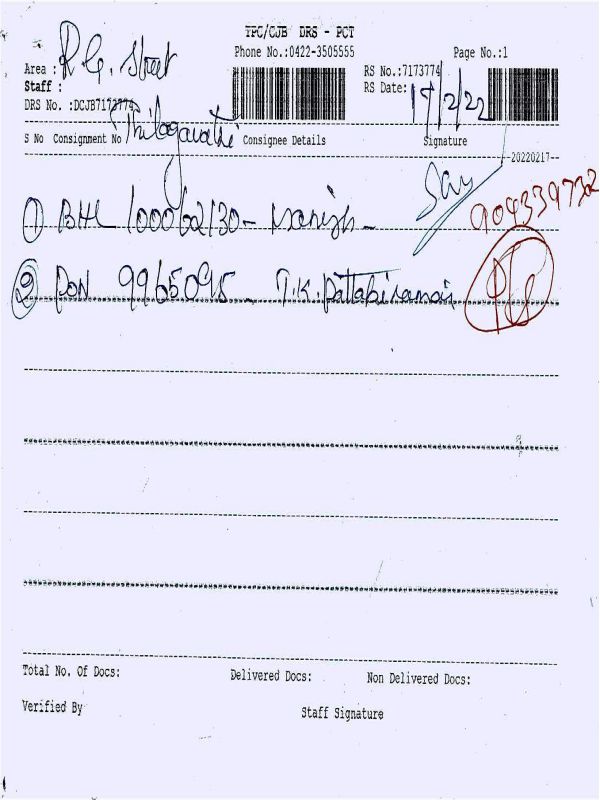 TPC/CJB DRS - PCT
Phone No.:0422-3505555 Page No.:1
Area : R G. Street RS No.:7173774
Staff : RS Date: 17/2/22
DRS No. :DCJB7173774
Thilagavathi
S No Consignment No Consignee Details Signature
--20220217--
① BHL 100062130 -
904339732
② PON 9965095 - T.K. Pattabiraman
Total No. Of Docs: Delivered Docs: Non Delivered Docs:
Verified By Staff Signature